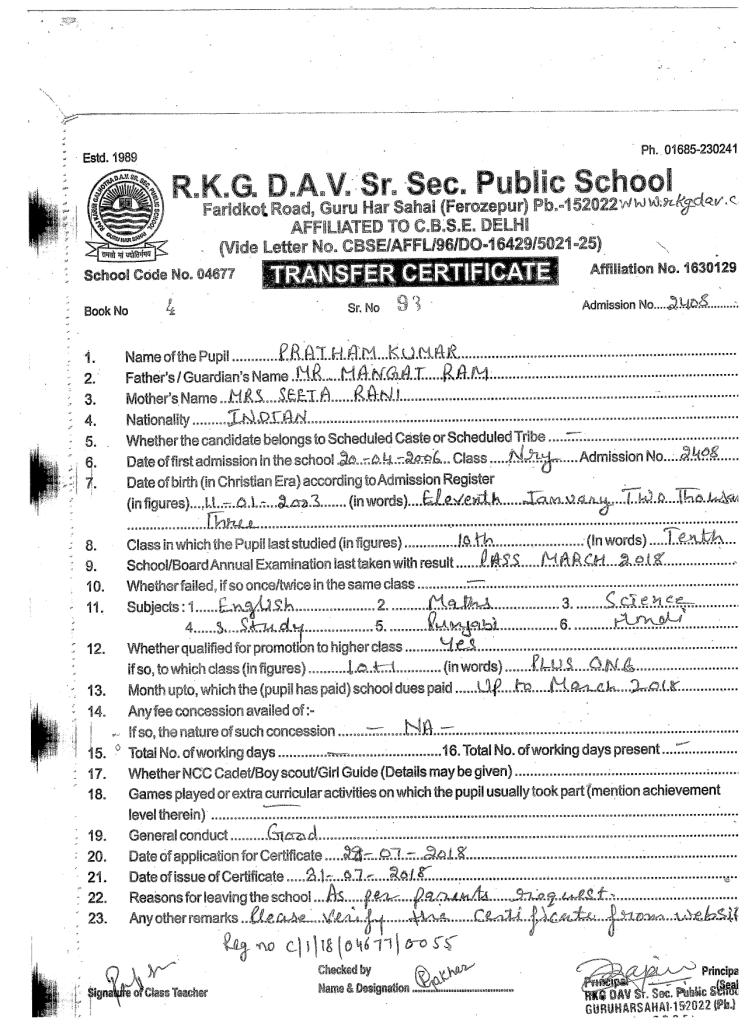 Estd. 1989
Ph. 01685-230241
R.K.G. D.A.V. Sr. Sec. Public School
Faridkot Road, Guru Har Sahai (Ferozepur) Pb.-152022 www.rkgdav.c
AFFILIATED TO C.B.S.E. DELHI
(Vide Letter No. CBSE/AFFL/96/DO-16429/5021-25)
School Code No. 04677 TRANSFER CERTIFICATE Affiliation No. 1630129
Book No 4 Sr. No 93 Admission No....2408
1. Name of the Pupil PRATHAM KUMAR
2. Father's / Guardian's Name MR MANGAT RAM
3. Mother's Name MRS SEETA RANI
4. Nationality INDIAN
5. Whether the candidate belongs to Scheduled Caste or Scheduled Tribe —
6. Date of first admission in the school 20-04-2006 Class Nry Admission No. 2408
7. Date of birth (in Christian Era) according to Admission Register
(in figures) 11-01-2003 (in words) Eleventh January Two Thousa
Three
8. Class in which the Pupil last studied (in figures) 10th (In words) Tenth
9. School/Board Annual Examination last taken with result PASS MARCH 2018
10. Whether failed, if so once/twice in the same class —
11. Subjects : 1. English 2. Maths 3. Science
4. S. Study 5. Punjabi 6. Hindi
12. Whether qualified for promotion to higher class Yes
if so, to which class (in figures) 10+1 (in words) PLUS ONE
13. Month upto, which the (pupil has paid) school dues paid Up to March 2018
14. Any fee concession availed of :-
If so, the nature of such concession — NA —
15. Total No. of working days — 16. Total No. of working days present —
17. Whether NCC Cadet/Boy scout/Girl Guide (Details may be given)
18. Games played or extra curricular activities on which the pupil usually took part (mention achievement
level therein) —
19. General conduct Good
20. Date of application for Certificate 21-07-2018
21. Date of issue of Certificate 21-07-2018
22. Reasons for leaving the school As per parents request.
23. Any other remarks Please verify the certificate from websit
Reg no C/1/18/04677/0055
Signature of Class Teacher
Checked by
Name & Designation
Principa
(Seal
Principal
RKG DAV Sr. Sec. Public School
GURUHARSAHAI-152022 (Pb.)